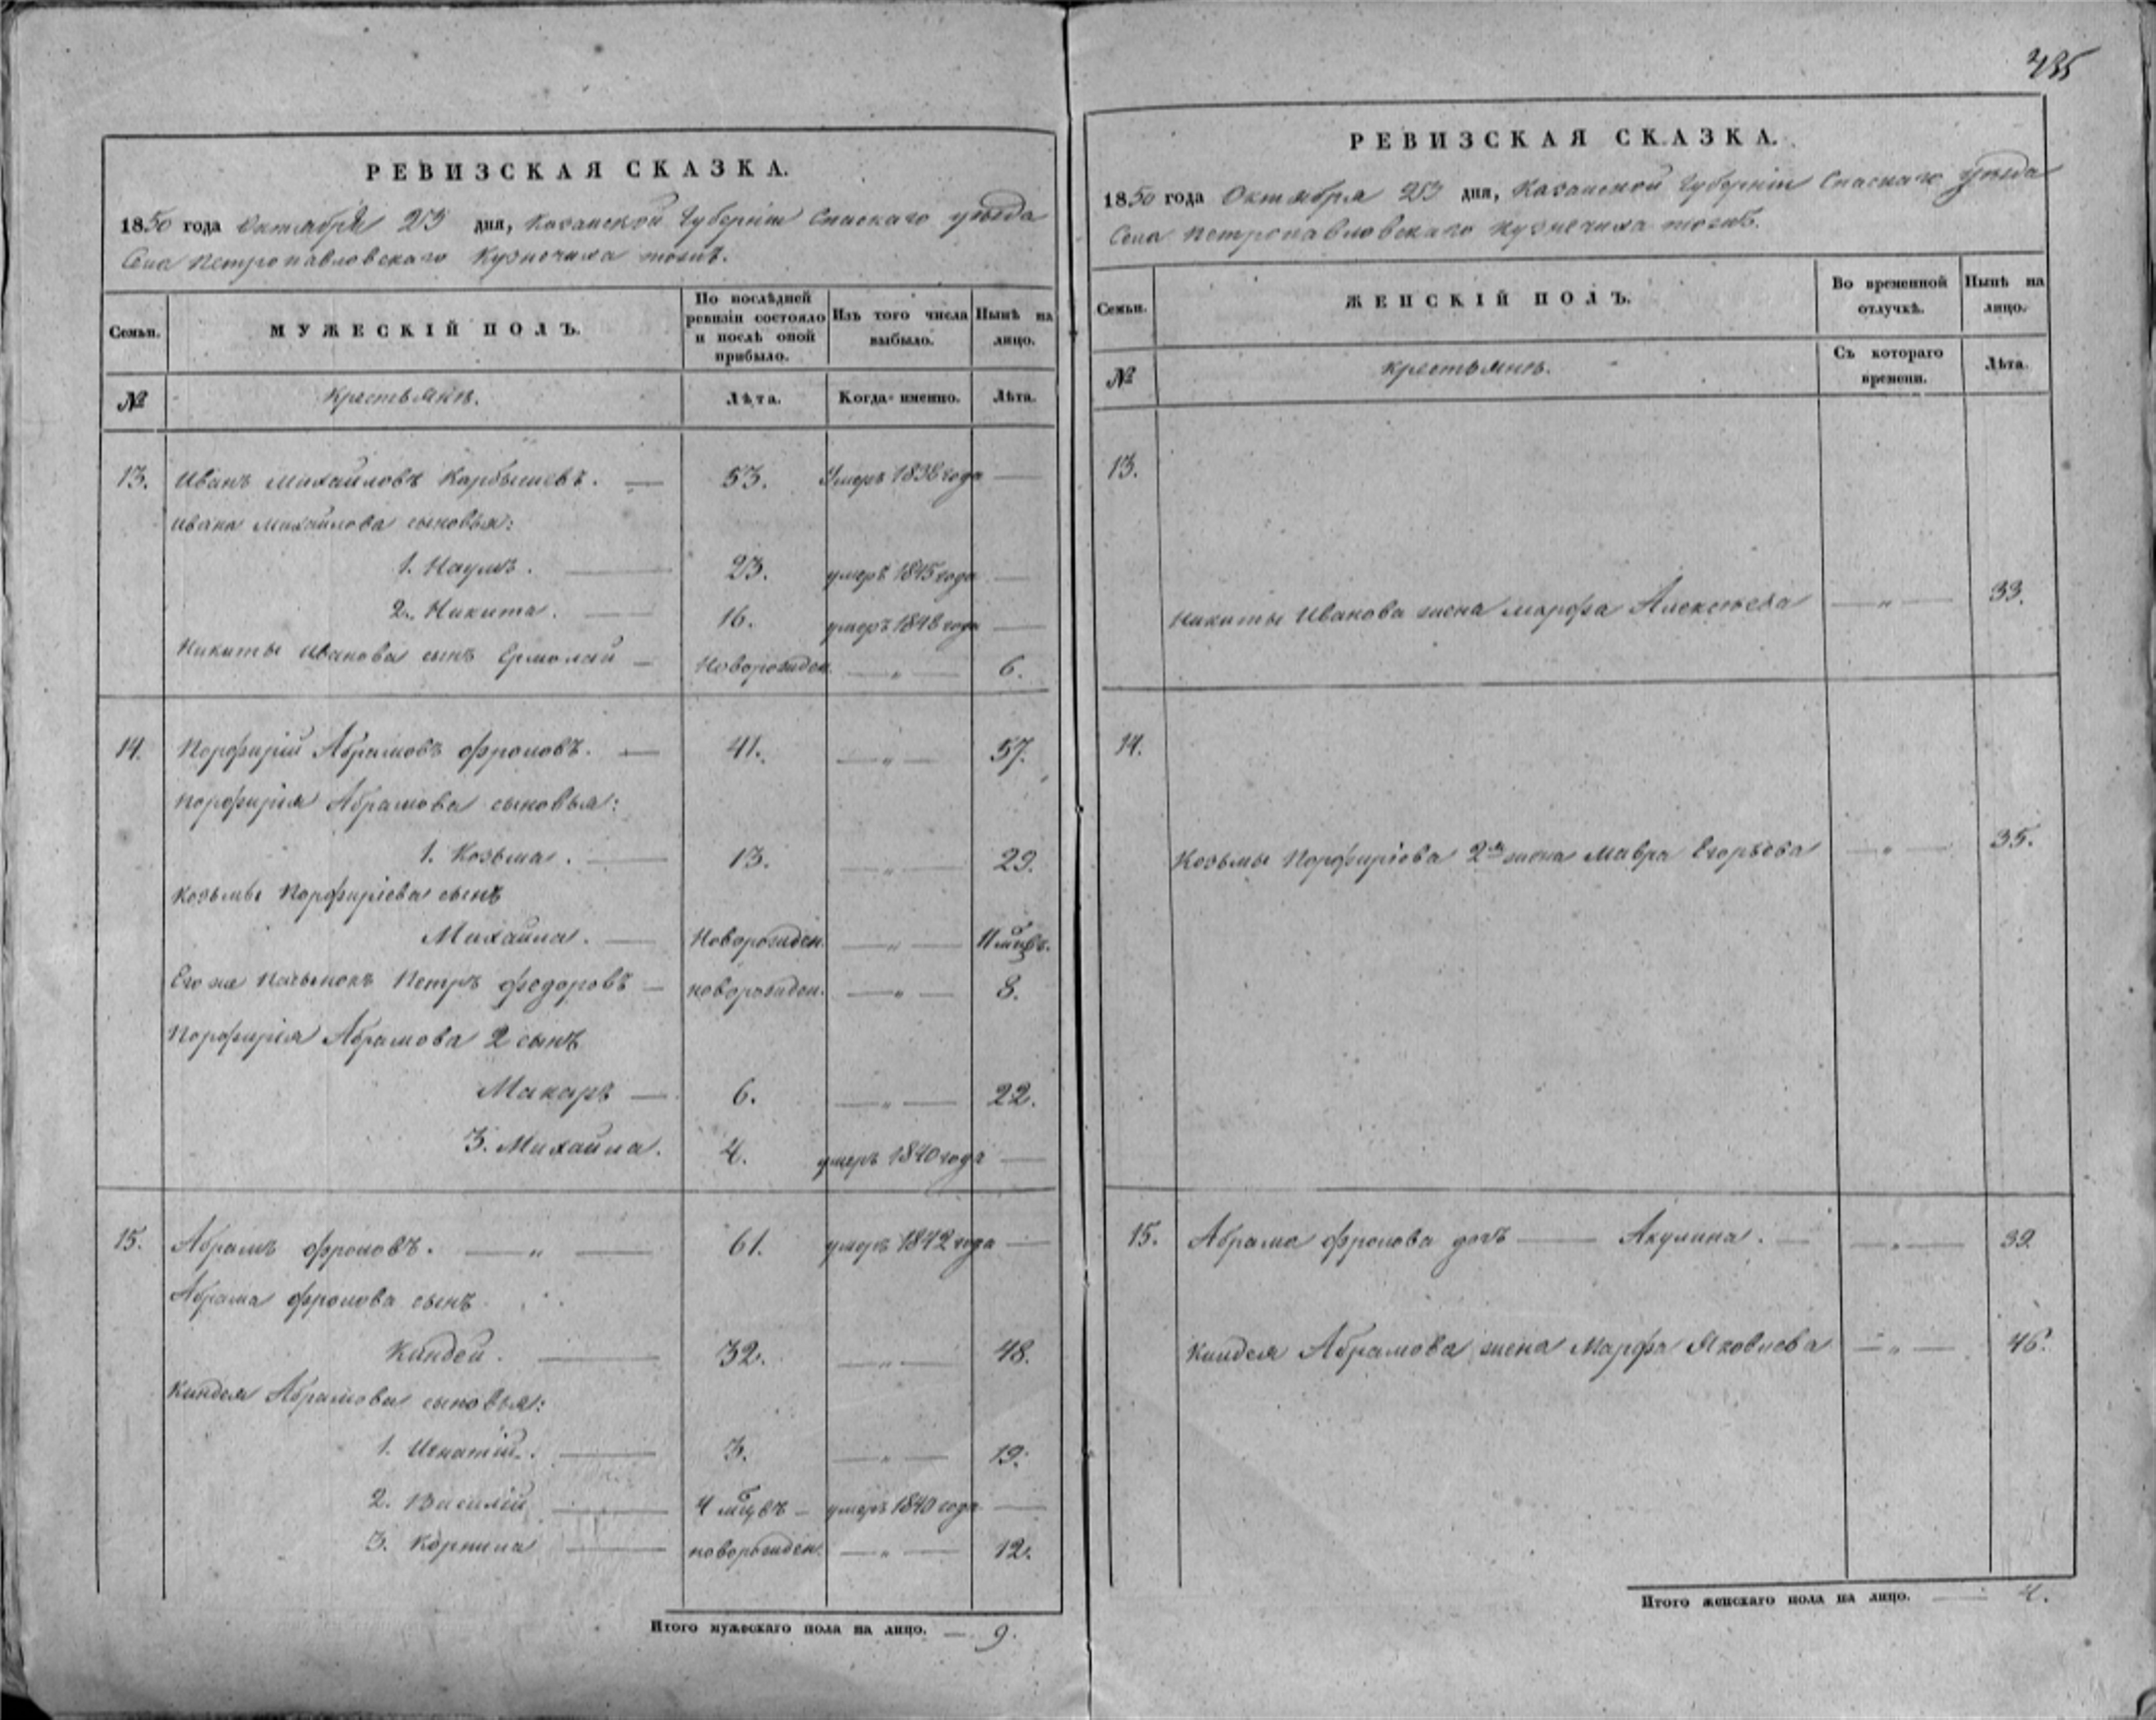 РЕВИЗСКАЯ СКАЗКА.
1850 года Октября 25 дня, Казанской Губерніи Спаскаго уѣзда
Села Петропавловскаго Кузнечиха тожъ.
Семьи.
МУЖЕСКІЙ ПОЛЪ.
По послѣдней ревизіи состояло и послѣ оной прибыло.
Изъ того числа выбыло.
Нынѣ на лицо.
№
Крестьянъ.
Лѣта.
Когда именно.
Лѣта.
13. Иванъ Михайловъ Карбышевъ. — 53. Умеръ 1838 года —
Ивана Михайлова сыновья:
1. Наумъ. — 23. умеръ 1845 года —
2. Никита. — 16. умеръ 1848 года —
Никиты Иванова сынъ Ермолай — Новорожден. — „ — 6.
14. Порфирій Абрамовъ Фроловъ. — 41. — „ — 57.
Порфирія Абрамова сыновья:
1. Козьма. — 13. — „ — 29.
Козьмы Порфиріева сынъ
Михайла. — Новорожден. — „ — 11 мцвъ.
Его же пасынокъ Петръ Федоровъ — новорожден. — „ — 8.
Порфирія Абрамова 2 сынъ
Макаръ — 6. — „ — 22.
3. Михайла. 4. умеръ 1840 года —
15. Абрамъ Фроловъ. — „ — 61. умеръ 1842 года —
Абрама Фролова сынъ
Киндей. — 32. — „ — 48.
Киндея Абрамова сыновья:
1. Игнатій. — 3. — „ — 19.
2. Василій — 4 мцвъ — умеръ 1840 года —
3. Корнила — новорожден. — „ — 12.
Итого мужескаго пола на лицо. — 9.
435
РЕВИЗСКАЯ СКАЗКА.
1850 года Октября 25 дня, Казанской Губерніи Спаскаго уѣзда
Села Петропавловскаго Кузнечиха тожъ.
Семьи.
ЖЕНСКІЙ ПОЛЪ.
Во временной отлучкѣ.
Нынѣ на лицо.
№
Крестьянъ.
Съ котораго времени.
Лѣта.
13.
Никиты Иванова жена Марфа Алексѣева — „ — 33.
14.
Козьмы Порфиріева 2я жена Мавра Егорьева — „ — 35.
15. Абрама Фролова дочь — Акулина. — — „ — 39
Киндея Абрамова жена Марфа Яковлева — „ — 46.
Итого женскаго пола на лицо. — 4.